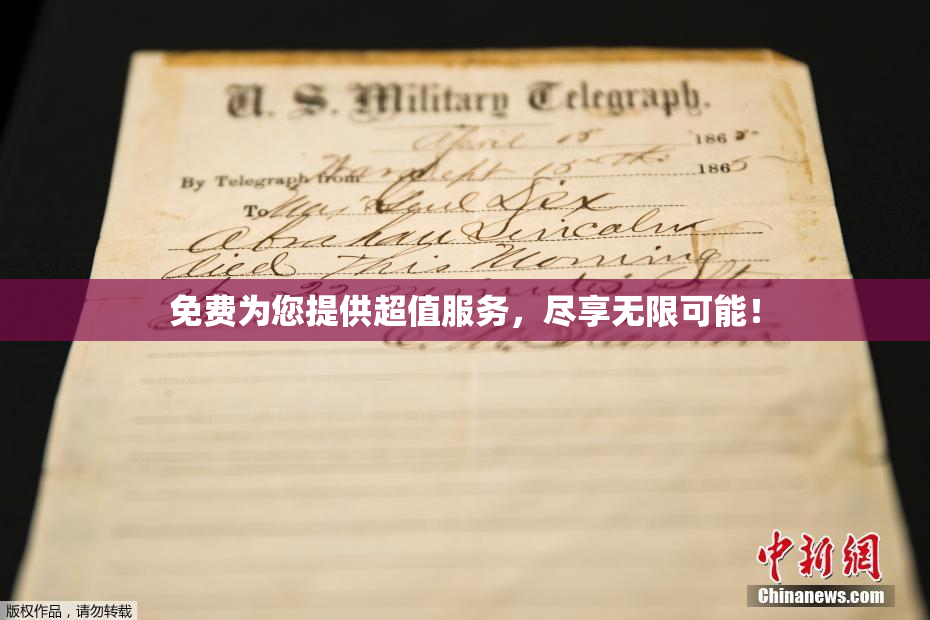 U. S. Military Telegraph.
April 15 1865
By Telegraph from War Dept 15th 1865
To Maj Genl Dix
Abraham Lincoln
died This Morning
22 minutes after
免费为您提供超值服务，尽享无限可能！
中新网
Chinanews.com
版权作品，请勿转载